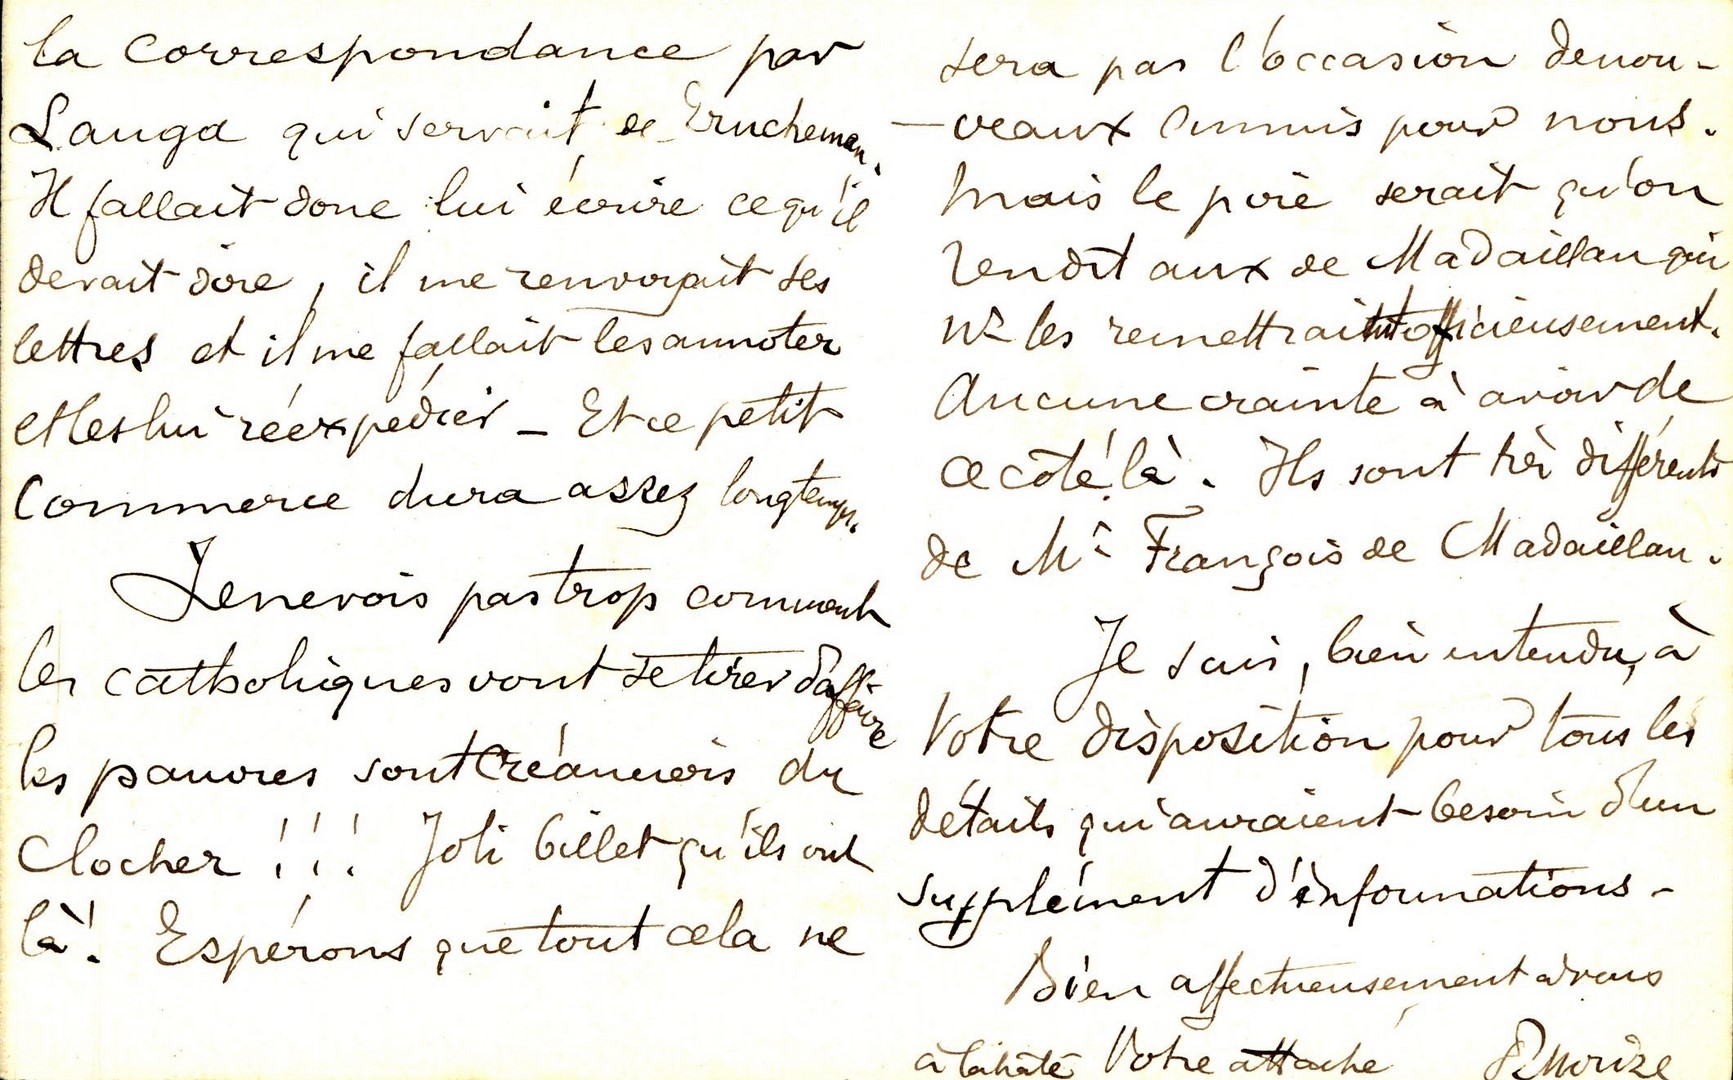 la correspondance par
Langa qui servait de Trucheman.
Il fallait donc lui écrire ce qu'il
devait dire, il me renvoyait ses
lettres et il me fallait les annoter
et les lui réexpédier _ Et ce petit
commerce dura assez longtemps.
Je ne vois pas trop comment
les catholiques vont se tirer d'affaire
les pauvres sont créanciers du
Clocher !!! Joli billet qu'ils ont
là! Espérons que tout cela ne
sera pas l'occasion de nou-
-veaux ennuis pour nous.
Mais le pire serait qu'on
vendît aux de Madaillan qui
les remettrait officieusement.
Aucune crainte à avoir de
ce côté là. Ils sont très différents
de Mr François de Madaillan.
Je suis, bien entendu, à
Votre disposition pour tous les
détails qui auraient besoin d'un
supplément d'informations -
Bien affectueusement à vous
à la hâte Votre attaché